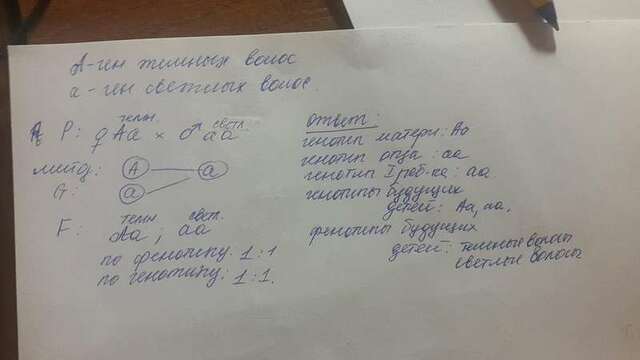 А-ген темных волос
а-ген светлых волос.
Р: ♀ Аа темн. × ♂ аа светл.
мейоз: А а
G: а
F: Аа темн. ; аа свет.
по фенотипу: 1:1
по генотипу: 1:1.
ответ:
генотип матери: Аа
генотип отца: аа
генотип I реб-ка: аа
генотипы будущих
детей: Аа, аа.
фенотипы будущих
детей: темные волосы
светлые волосы